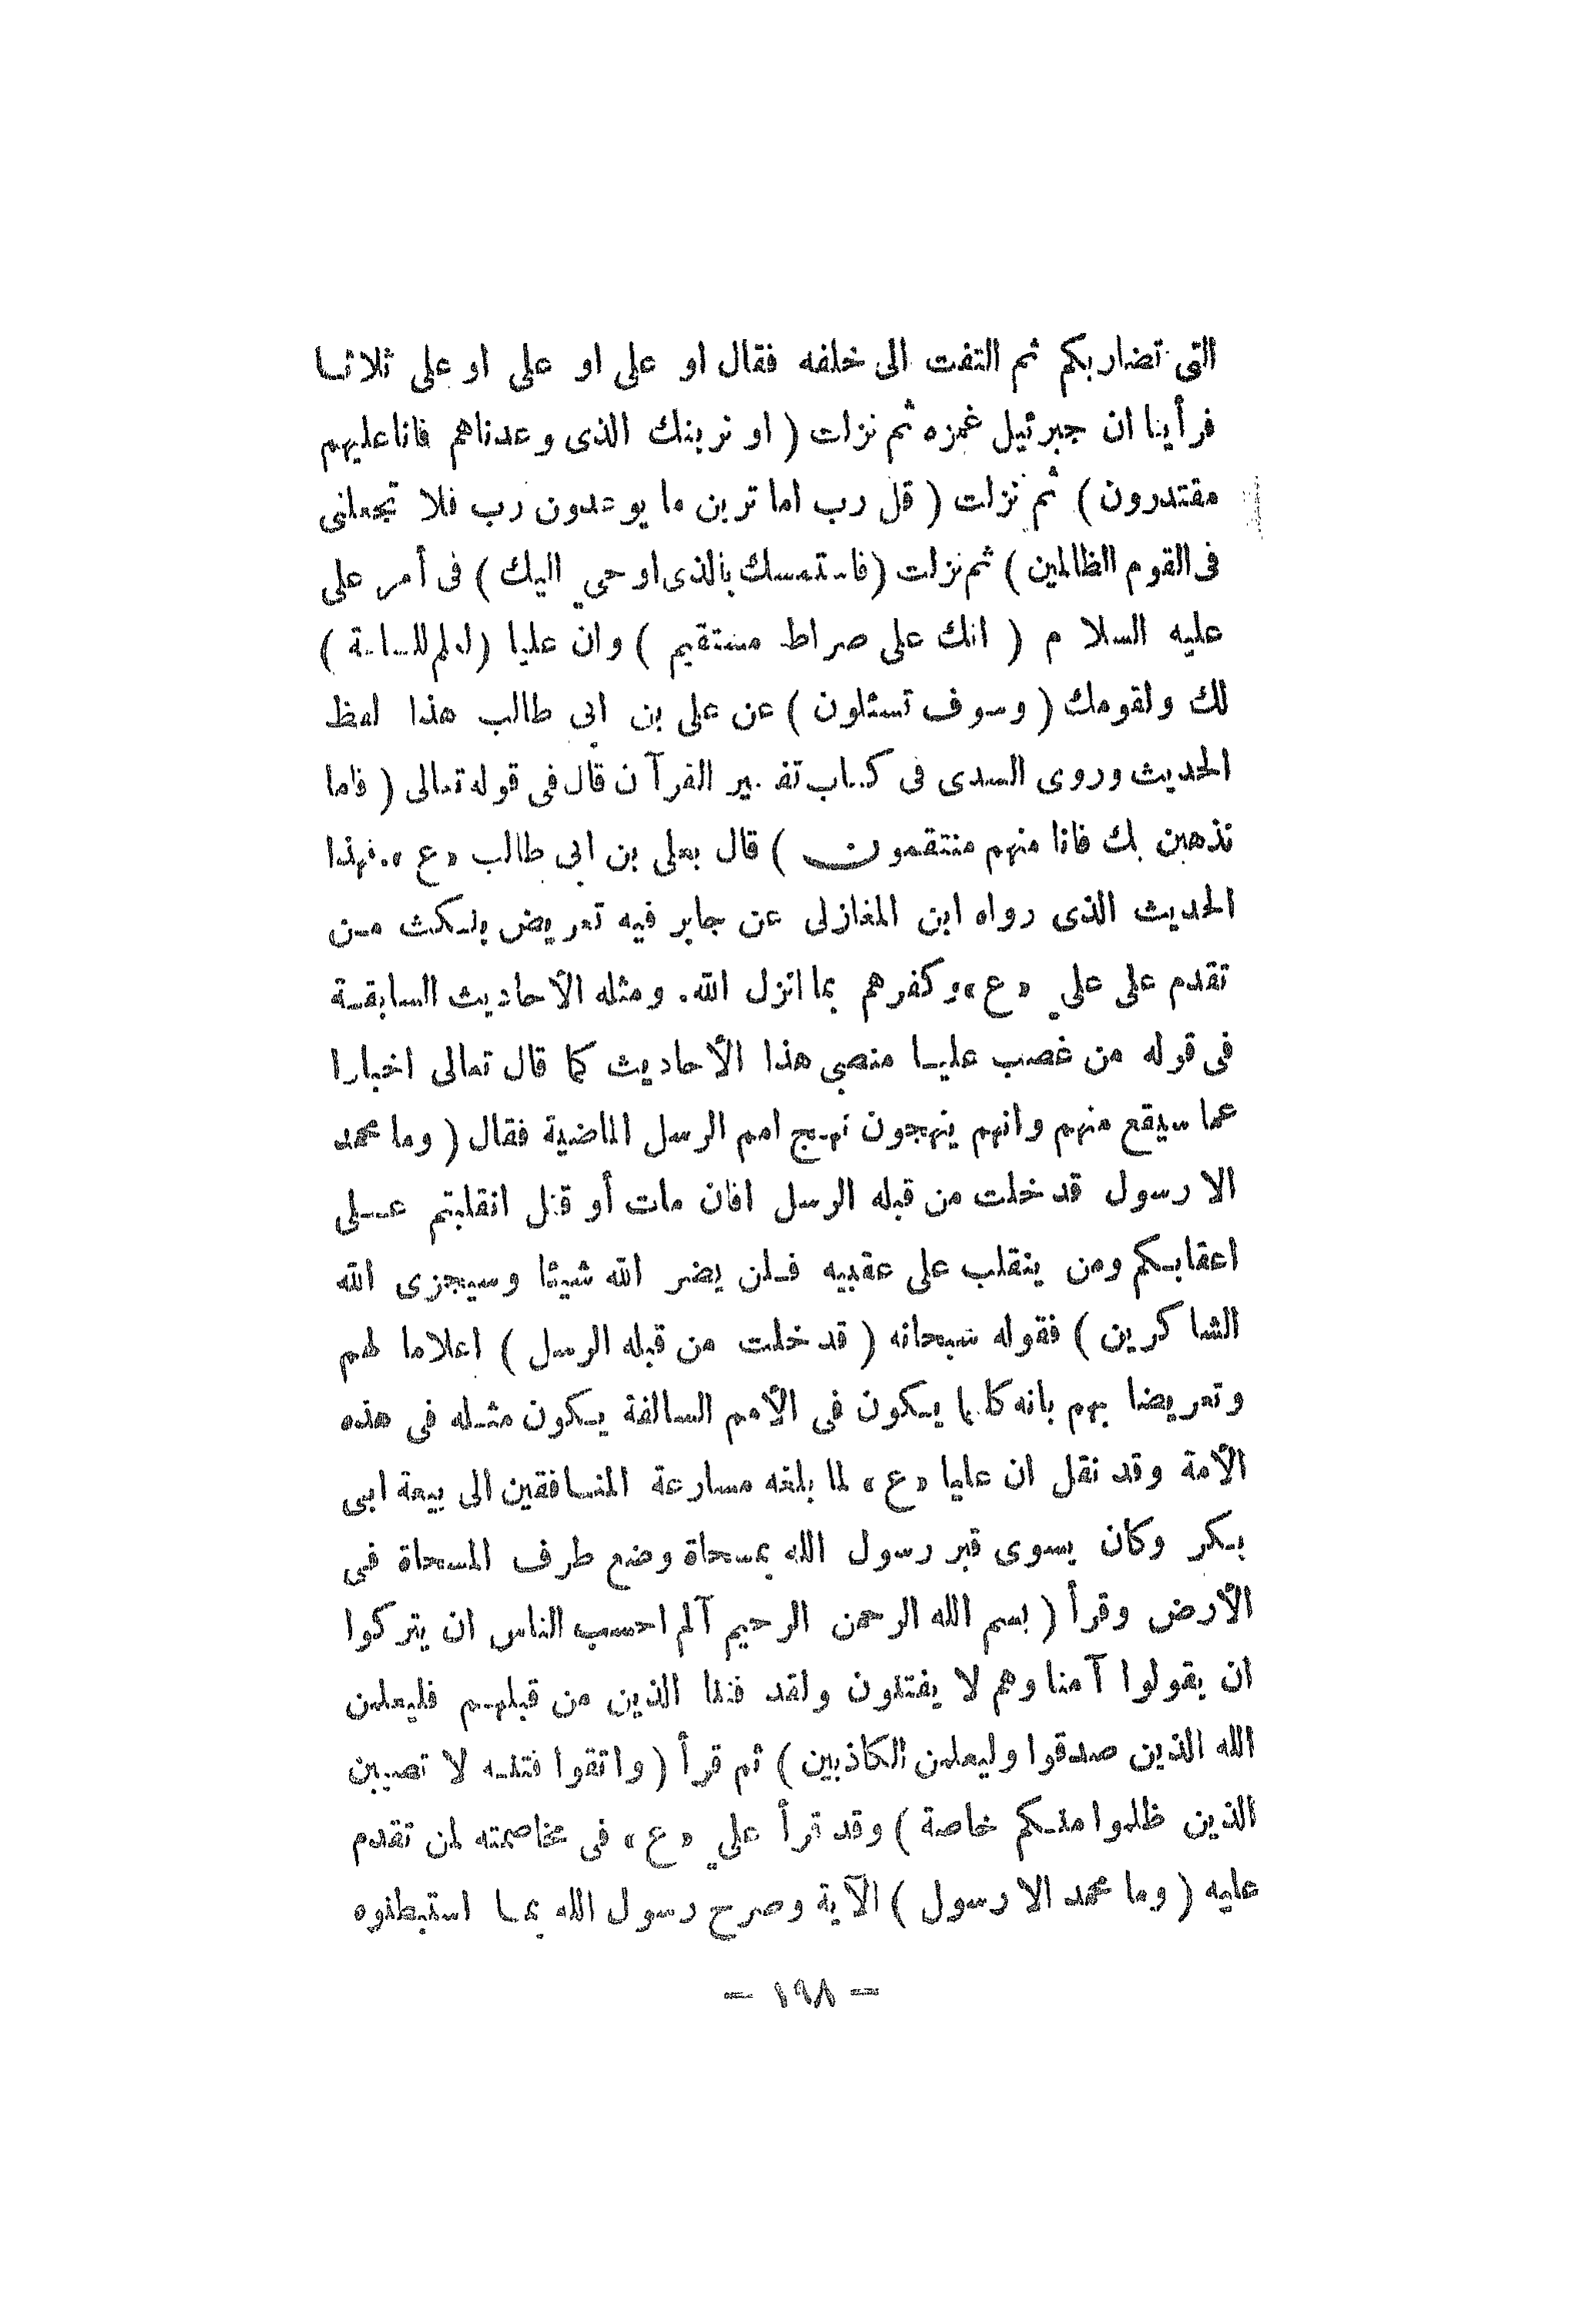 التى تضاربكم ثم التفت الى خلفه فقال او على او على او على ثلاثا
فرأينا ان جبرئيل غمزه ثم نزلت ( او نرينك الذى وعدناهم فانا عليهم
مقتدرون ) ثم نزلت ( قل رب اما ترين ما يوعدون رب فلا تجعلنى
فى القوم الظالمين ) ثم نزلت ( فاستمسك بالذى اوحي اليك ) فى أمر على
عليه السلام ( انك على صراط مستقيم ) وان عليا ( لعلم للساعة )
لك ولقومك ( وسوف تسئلون ) عن على بن ابى طالب هذا لفظ
الحديث وروى السدى فى كتاب تفسير القرآن قال فى قوله تعالى ( فاما
نذهبن بك فانا منهم منتقمون ) قال بعلى بن ابى طالب «ع». فهذا
الحديث الذى رواه ابن المغازلى عن جابر فيه تعريض بنكث من
تقدم على علي «ع» وكفرهم بما انزل الله. ومثله الأحاديث السابقة
فى قوله من غصب عليا منصبى هذا الأحاديث كما قال تعالى اخبارا
عما سيقع منهم وانهم ينهجون نهج امم الرسل الماضية فقال ( وما محمد
الا رسول قد خلت من قبله الرسل افان مات أو قتل انقلبتم على
اعقابكم ومن ينقلب على عقبيه فلن يضر الله شيئا وسيجزى الله
الشاكرين ) فقوله سبحانه ( قد خلت من قبله الرسل ) اعلاما لهم
وتعريضا بهم بانه كلما يكون فى الأمم السالفة يكون مثله فى هذه
الأمة وقد نقل ان عليا «ع» لما بلغه مسارعة المنافقين الى بيعة ابى
بكر وكان يسوى قبر رسول الله بمسحاة وضع طرف المسحاة فى
الأرض وقرأ ( بسم الله الرحمن الرحيم آلم احسب الناس ان يتركوا
ان يقولوا آمنا وهم لا يفتنون ولقد فتنا الذين من قبلهم فليعلمن
الله الذين صدقوا وليعلمن الكاذبين ) ثم قرأ ( واتقوا فتنه لا تصيبن
الذين ظلموا منكم خاصة ) وقد قرأ علي «ع» فى مخاصمته لمن تقدم
عليه ( وما محمد الا رسول ) الآية وصرح رسول الله بما استبطنوه
- ١٩٨ -